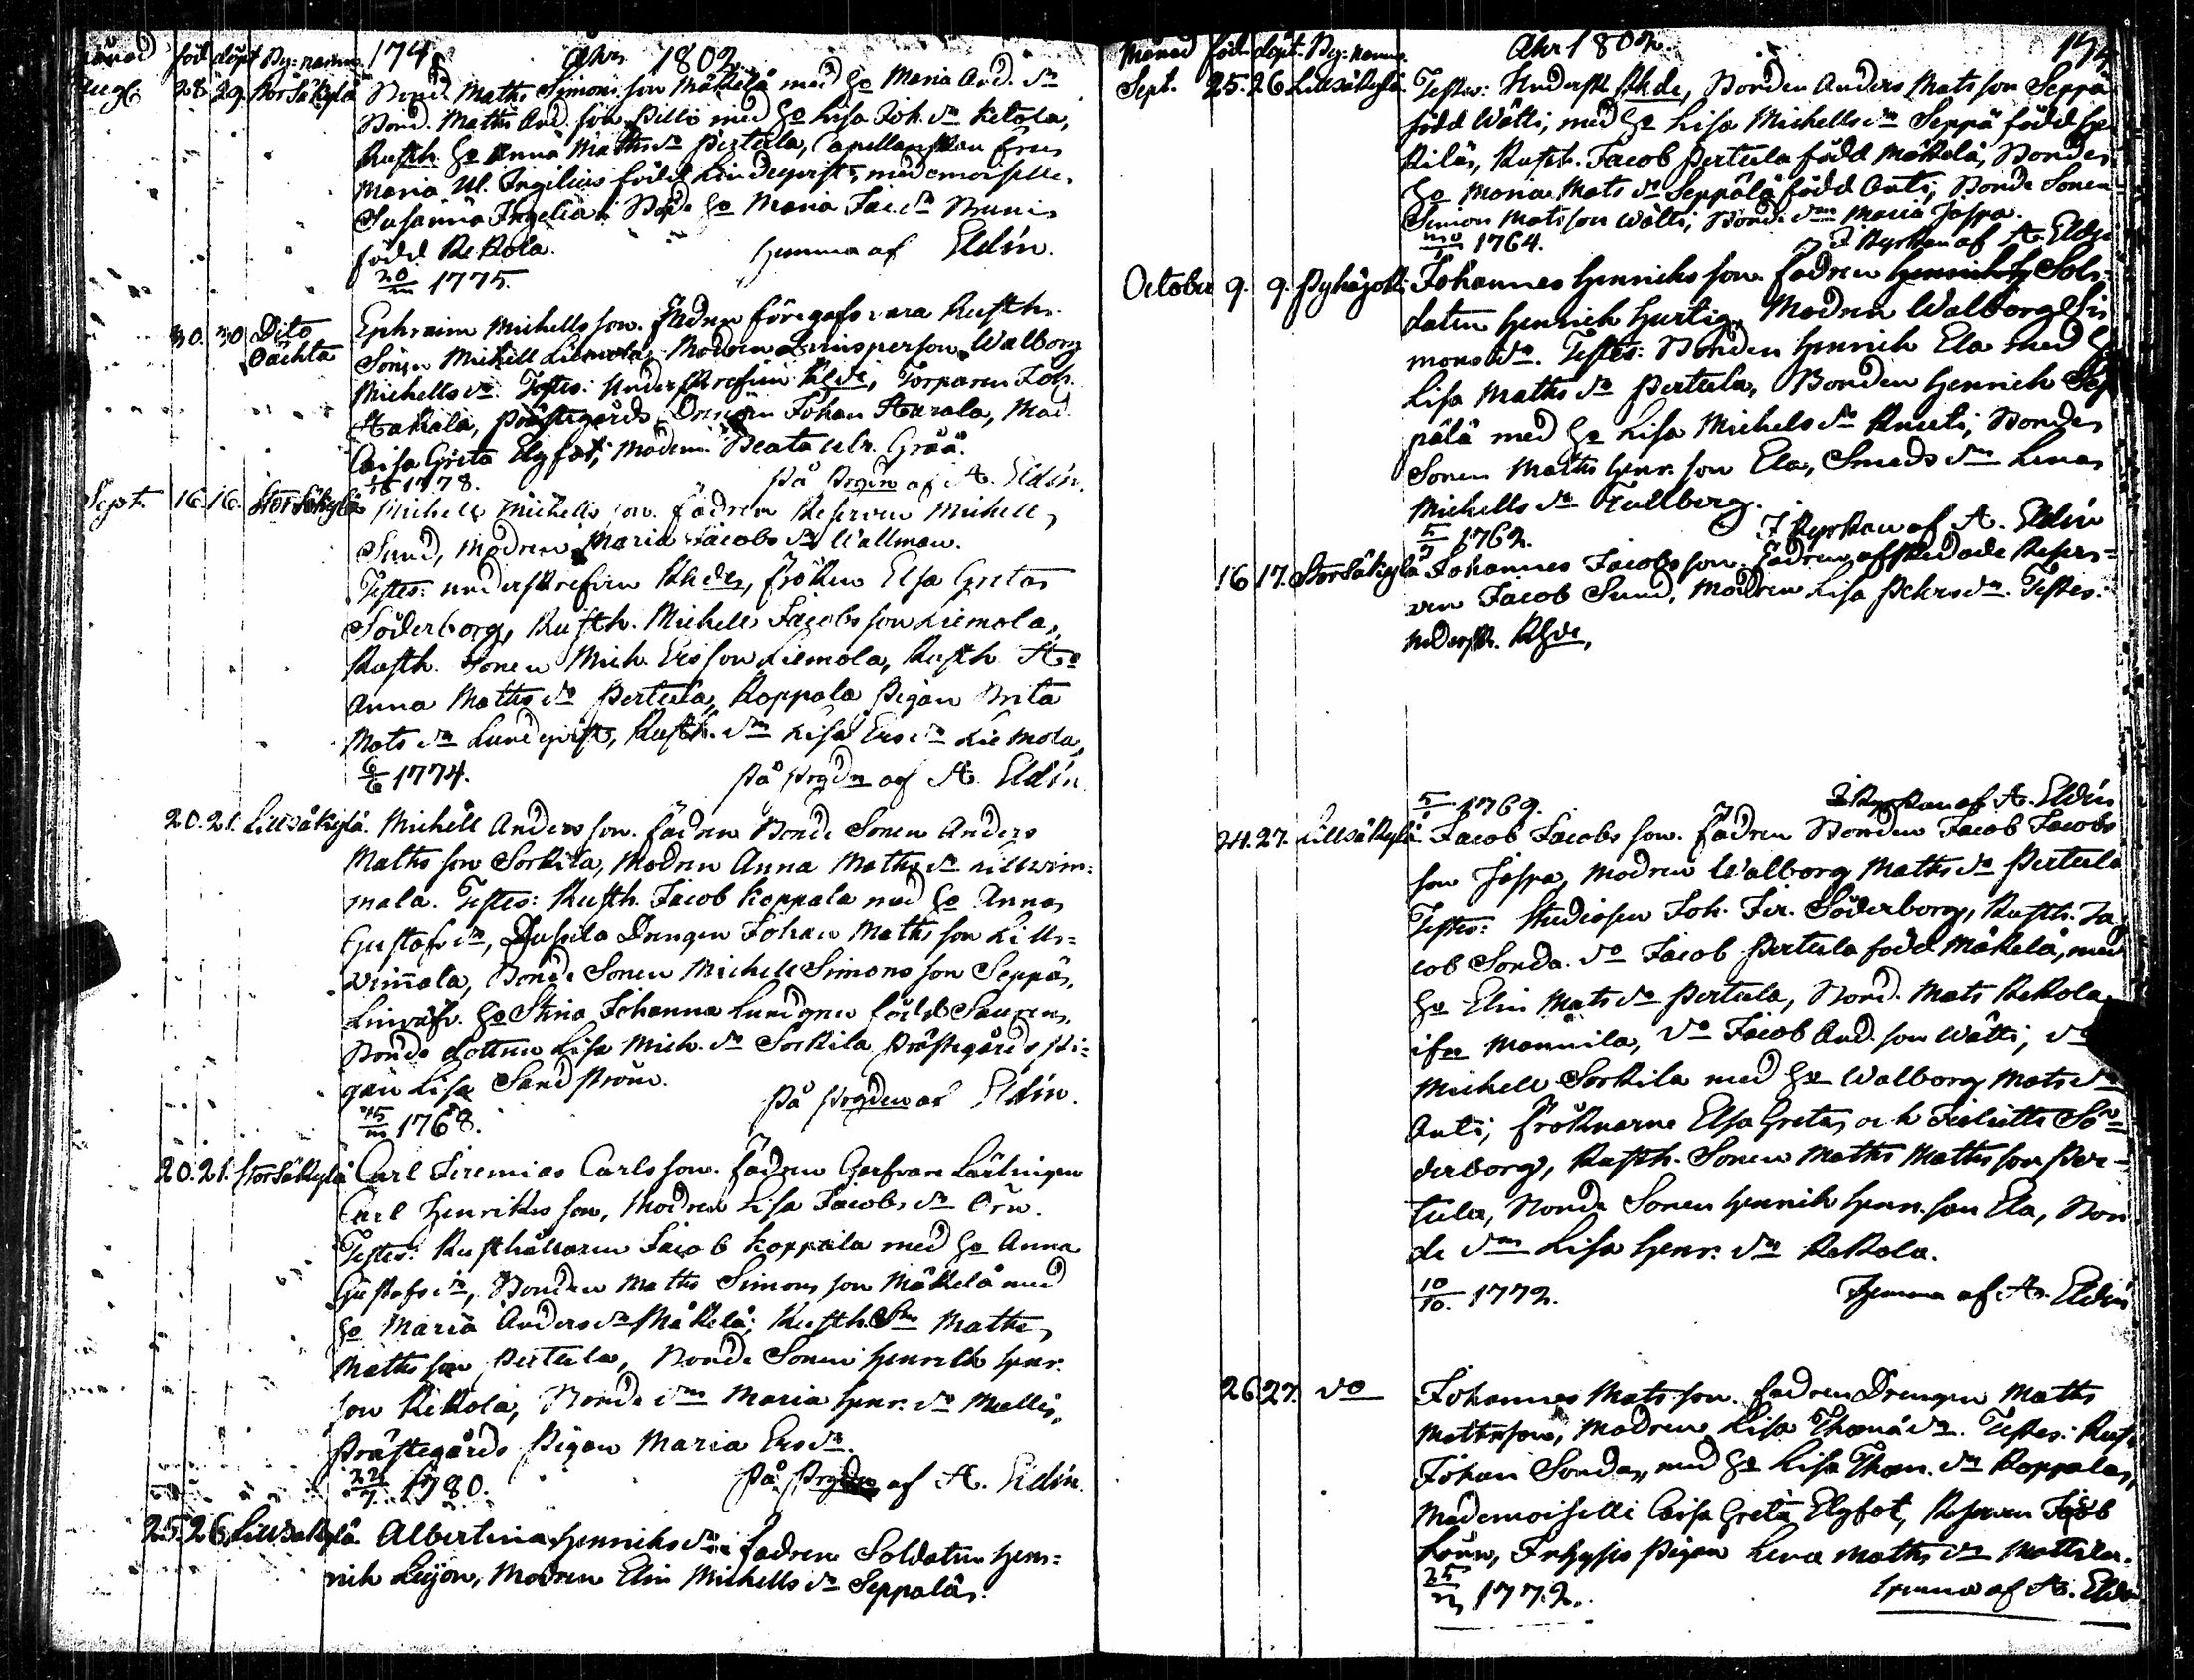 Månad föd döpt By:namn 174 Åhr 1802
Aug 28 29 StorSäkylä Bond. Matts Simons son Mäkelä med ho Maria And. dr
Bond. Matts And. son Pilli med ho Lisa Joh. dr Ketola,
Rusth. ho Anna Matts dr Pertula, Capellanskan Fru
Maria Ul. Ingelius född Lindeqvist, mademoiselle
Susanna Ingelia, Bonde ho Maria Jac. dr Bruni
född Kekola. Hemma af Eldin.
1775.
30. 30 Dito Ephraim Michells son. Fadren föregafs vara Rusth.
Sonen Michell Liemola, Modren Qvinsperson Walborg
Michells dr. Testes: underskrefvin Khde, Torparen Joh.
Hakala, Prästegårds Drengen Johan Harala, Mad.
Caisa Greta Elgfot, Madem. Beata Ulr. Grää.
1778. På Prgdn af A. Eldin.
Sept. 16. 16. StorSäkylä Michell Michells son. Fadren Reserven Michell
Sund, Modren Maria Jacobs dr Wallman.
Testes: underskrefvin Khde, Fröken Elsa Greta
Söderborg, Rusth. Michell Jacobs son Liemola,
Rusth. Sonen Mich. Ers son Liemola, Rusth. Ho
Anna Matts dr Pertula, Koppala Pigan Brita
Mats dr Lundqvist, Rusth. dr Lisa Ers dr Liemola,
6/6 1774. På Prgdn af A. Eldin
20. 21. LillSäkylä. Michell Anders son. Fadren Bonde Sonen Anders
Matts son Sorkila, Modren Anna Matts dr Lillvim=
mala. Testes: Rusth. Jacob Koppala med ho Anna
Gustafs dr, Drengen Johan Matts son Lill=
vimala, Bonde Sonen Michell Simons son Seppä,
ho Stina Johanna Lundgren född Sauren,
Bonde dottren Lisa Mich. dr Sorkila Prästegårds Pi=
gan Lisa Sandström.
1768. På Prgden af Eldin.
20. 21. StorSäkylä Carl Jeremias Carls son. Fadren Garfvare Lärlingen
Carl Henriks son, Modren Lisa Jacobs dr Örn.
Testes: Rusthållaren Jacob Koppala med ho Anna
Gustafs dr, Bonden Matts Simons son Mäkelä med
ho Maria Anders dr Mäkelä, Rusth. Sn Matts
Matts son Pertula, Bonde Sonen Henrich Henr.
son Kekola, Bonde dr Maria Henr. dr Mälli,
Prästegårds Pigan Maria Ers dr.
22/7 1780. På Prgden af A. Eldin.
25. 26. LillSäkylä Albertina Henriks dr. Fadren Soldaten Hen=
rik Leijon, Modren Elin Michells dr Seppälä.
Månad föd döpt. By:namn Åhr 1802. 174
Sept. 25. 26 LillSäkylä Testes: Underskr. Khde, Bonden Anders Mats son Seppä
född Wätti, med ho Lisa Michells dr Seppä född
Rusth. Jacob Pertula född Mäkelä, Bonde
ho Maria Mats dr Seppälä född Anti, Bonde Sonen
Simon Mats son Wätti, Bonde dr Maria Jaspa.
1764. I Kyrkan af A. Eldin
October 9. 9. Pyhäjoki Johannes Henrichs son. Fadren Sol=
daten Henrich Hurtig. Modren Walborg Si
mons dr. Testes: Bonden Henrich Ela med ho
Lisa Matts dr Pertula, Bonden Henrich Sep
pälä med ho Lisa Michels dr Knuti, Bonde
Sonen Matts Henr. son Ela, Smeds dr Lena
Michells dr Tullberg.
1762. I Kyrkan af A. Eldin
16 17. StorSäkylä Johannes Jacobs son. Fadren afskedade Reser=
ven Jacob Sund, Modren Lisa Pehrs dr. Testes:
underskr. Khde,
1769. I Kyrkan af A. Eldin
24. 27. LillSäkylä Jacob Jacobs son. Fadren Bonden Jacob Jacobs
son Jaspa, Modren Walborg Matts dr Pertula
Testes: Studiosen Joh. Jer. Söderborg, Rusth. Ja
cob Sonda. do Jacob Pertula född Mäkelä, med
ho Elin Mats dr Pertula, Bond. Mats Kekola
Mannila, do Jacob And. son Wätti, do
Michell Sorkila med ho Walborg Mats dr
Anti, Fröknarna Elsa Greta och Juliitta Sö=
derborg, Rusth. Sonen Matts Matts son Per=
tula, Bonde Sonen Henrik Henr. son Ela, Bon
de dr Lisa Henr. dr Kekola.
10/10. 1772. Hemma af A. Eldin
26 27. do Johannes Mats son. Fadren Drengen Matts
Matts son, Modren Lisa Thomä dr. Testes: Rust
Johan Sonda, med ho Lisa Thom. dr Koppala,
Mademoiselle Caisa Greta Elgfot, Reserven Jacob
Pigan Lena Matts dr Mattila.
1772. Hemma af A. Eldin